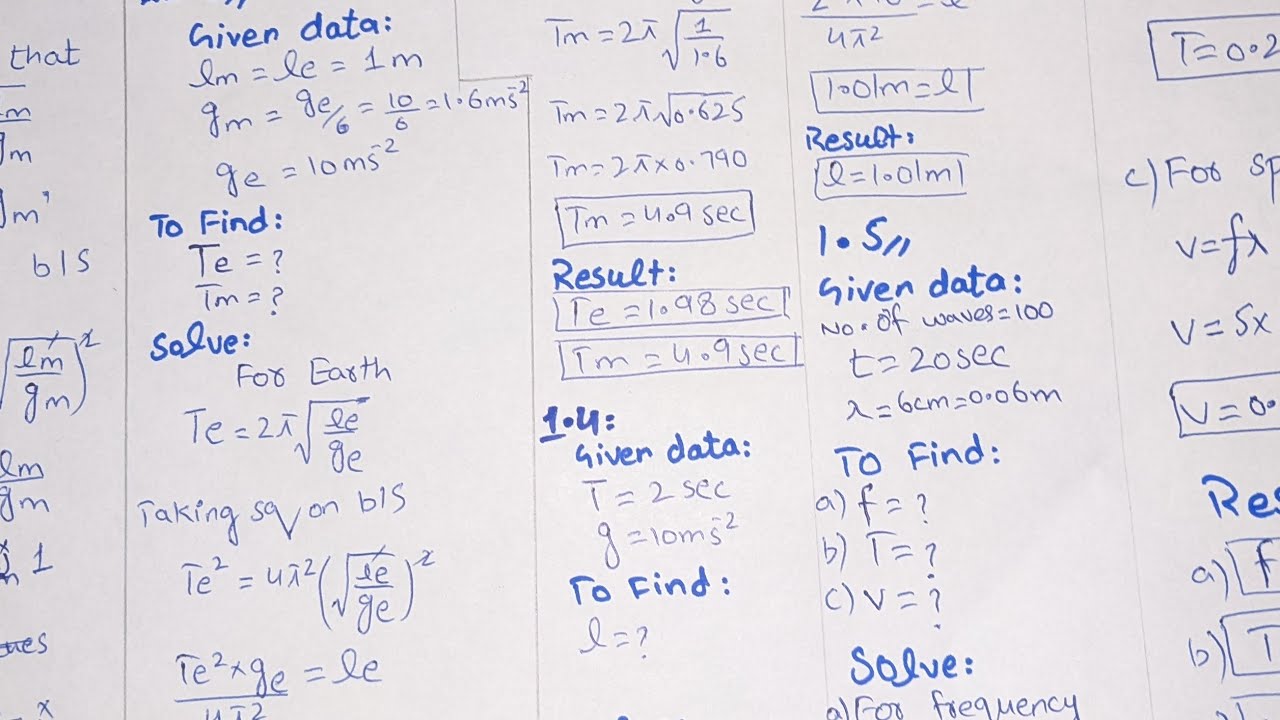 that
m
gm
gm'
b/S
lm
gm
lm
gm
1
Given data:
lm = le = 1m
gm = ge/6 = 10/6 = 1.6ms⁻²
ge = 10ms⁻²
To Find:
Te = ?
Tm = ?
Solve:
For Earth
Te = 2π√(le/ge)
Taking sq on b/S
Te² = 4π²(√(le/ge))²
Te² × ge = le
4π²
Tm = 2π√(1/1.6)
Tm = 2π√0.625
Tm = 2π × 0.790
Tm = 4.9 sec
Result:
Te = 1.98 sec
Tm = 4.9 sec
1.4:
Given data:
T = 2 sec
g = 10ms⁻²
To Find:
l = ?
4π²
1.01m = l
Result:
l = 1.01m
1.5,,
Given data:
No. of waves = 100
t = 20 sec
λ = 6cm = 0.06m
To Find:
a) f = ?
b) T = ?
c) v = ?
Solve:
a) For frequency
T = 0.2
c) For sp
v = fλ
v = 5x
v = 0.
Res
a) f
b) T